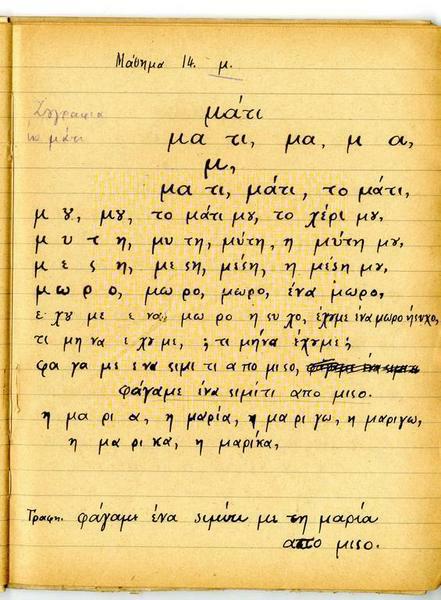 Μάθημα 14. μ.
Ζωγραφιά
το μάτι
μάτι
μα τι, μα, μ α,
μ,
μα τι, μάτι, το μάτι,
μ ȣ, μȣ, το μάτι μȣ, το χέρι μȣ,
μ υ τ η, μυ τη, μύτη, η μύτη μȣ,
μ ε ς η, με ςη, μέςη, η μέςη μȣ,
μ ω ρ ο, μω ρο, μωρο, ένα μωρο,
ε χȣ με ε να μω ρο η ςυ χο, έχȣμε ένα μωρο ήςυχο,
τι μη να ε χȣ με, ; τι μήνα έχȣμε;
φα γα με ε να ςιμι τι α πο μι ςο, φάγαμε ένα ςιμίτι
φάγαμε ένα ςιμίτι απο μιςο.
η μα ρι α, η μαρία, η μα ρι γω, η μαριγω,
η μα ρι κα, η μαρίκα,
Γραφη. φάγαμε ένα ςιμίτι με τη μαρία
απο μιςο.